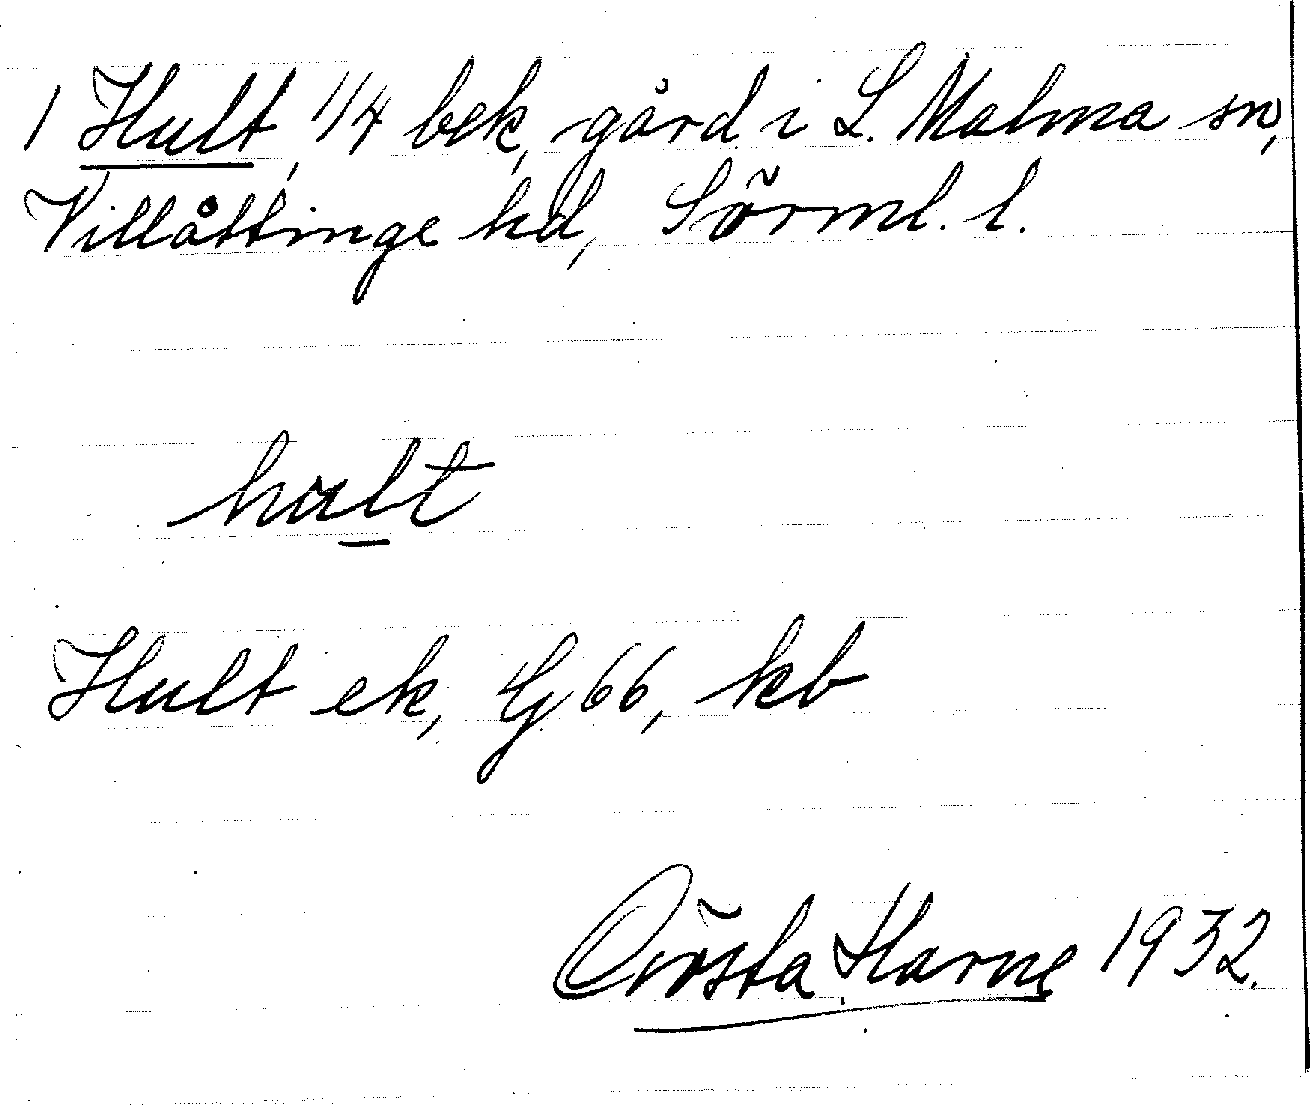 1 Hult, 1/4 bek, gård i L. Malma sn,
Villåttinge hd, Sörml. l.
hult
Hult ek, G 66, kb
Gösta Harne 1932.